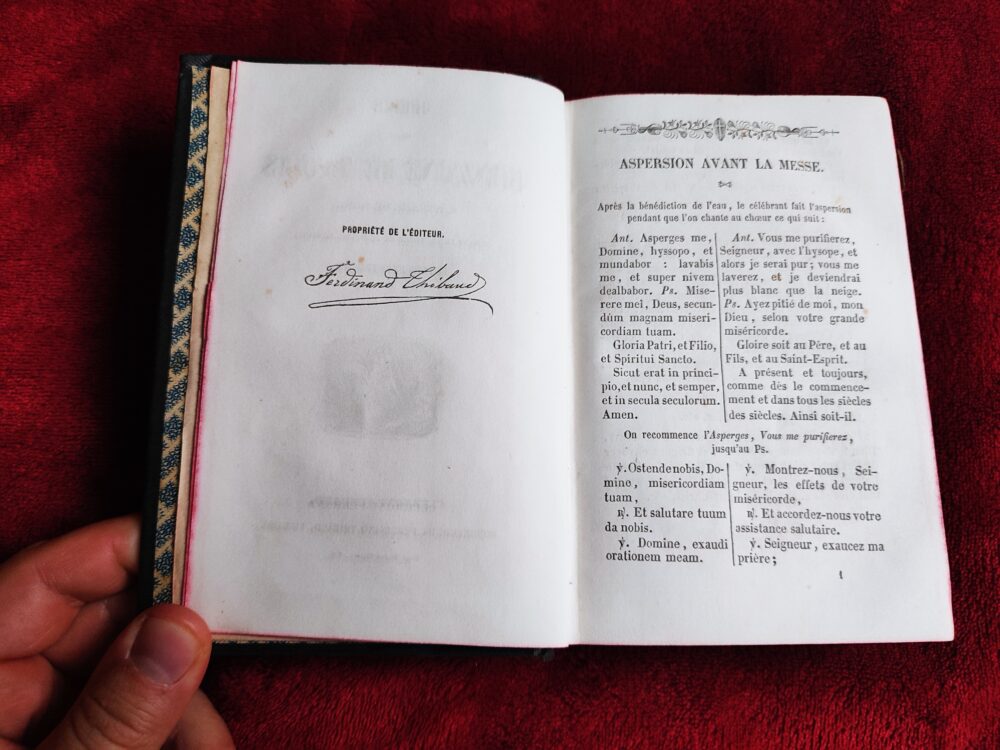 PROPRIÉTÉ DE L'ÉDITEUR.
Ferdinand Thibaud
ASPERSION AVANT LA MESSE.
Après la bénédiction de l'eau, le célébrant fait l'aspersion
pendant que l'on chante au chœur ce qui suit :
Ant. Asperges me,
Domine, hyssopo, et
mundabor : lavabis
me, et super nivem
dealbabor. Ps. Mise-
rere mei, Deus, secun-
dùm magnam miseri-
cordiam tuam.
Gloria Patri, et Filio,
et Spiritui Sancto.
Sicut erat in princi-
pio, et nunc, et semper,
et in secula seculorum.
Amen.
Ant. Vous me purifierez,
Seigneur, avec l'hysope, et
alors je serai pur; vous me
laverez, et je deviendrai
plus blanc que la neige.
Ps. Ayez pitié de moi, mon
Dieu, selon votre grande
miséricorde.
Gloire soit au Père, et au
Fils, et au Saint-Esprit.
A présent et toujours,
comme dès le commence-
ment et dans tous les siècles
des siècles. Ainsi soit-il.
On recommence l'Asperges, Vous me purifierez,
jusqu'au Ps.
℣. Ostende nobis, Do-
mine, misericordiam
tuam,
℟. Et salutare tuum
da nobis.
℣. Domine, exaudi
orationem meam.
℣. Montrez-nous, Sei-
gneur, les effets de votre
miséricorde,
℟. Et accordez-nous votre
assistance salutaire.
℣. Seigneur, exaucez ma
prière;
1